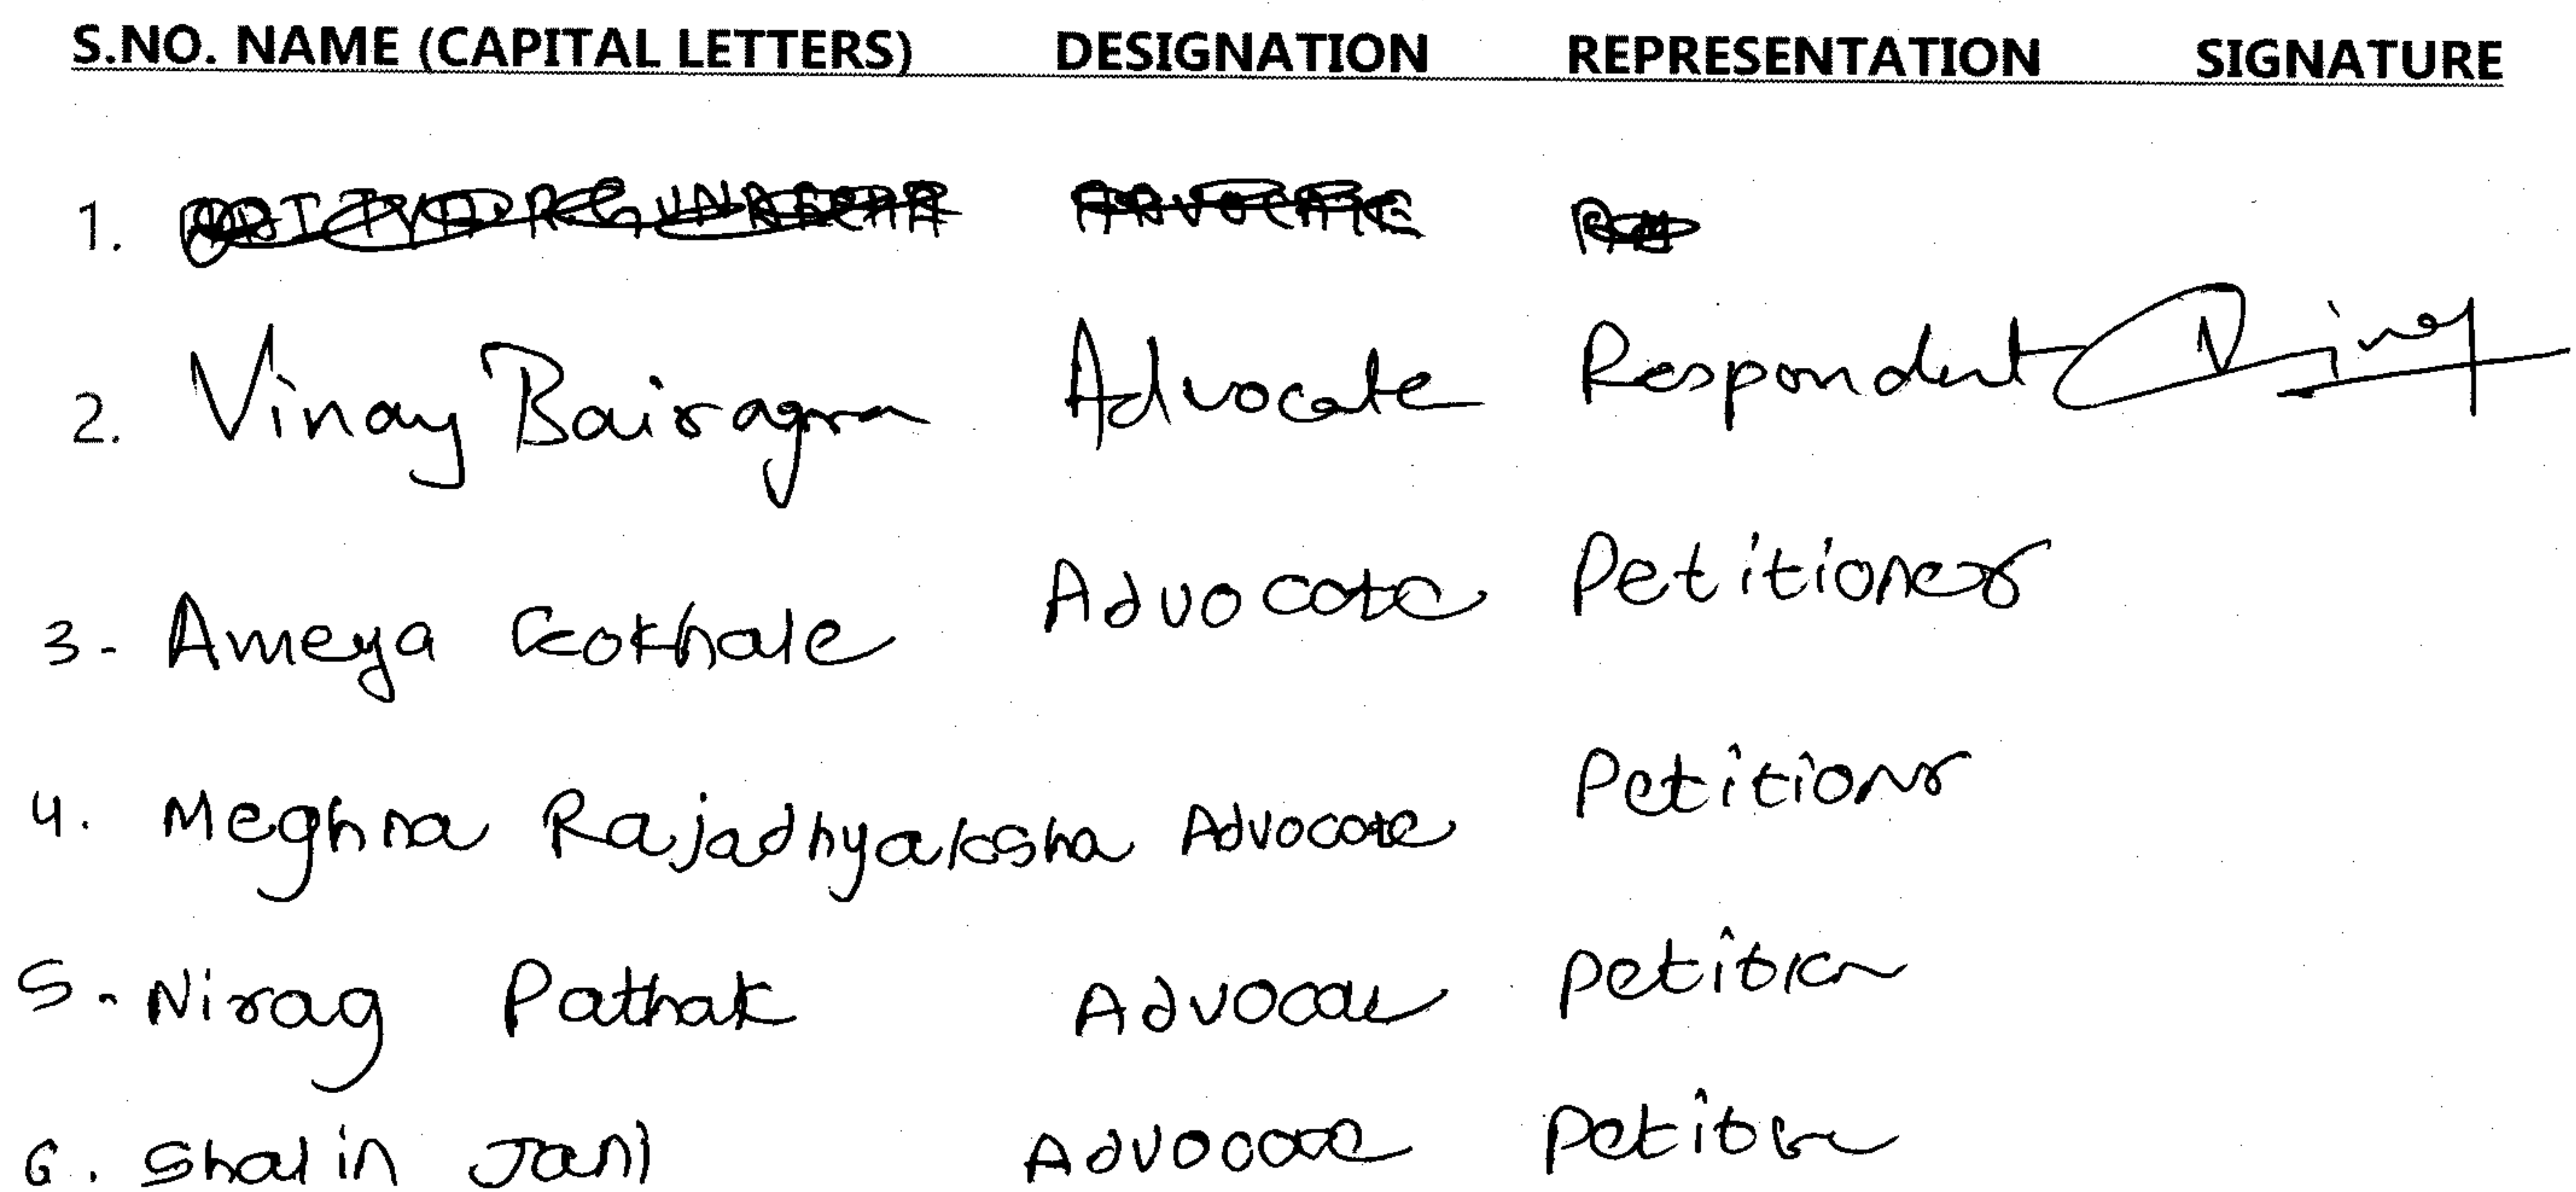 S.NO. NAME (CAPITAL LETTERS) DESIGNATION REPRESENTATION SIGNATURE
1.
2. Vinay Bairagra Advocate Respondent
3- Ameya Gokhale Advocate Petitioner
4. Meghna Rajadhyaksha Advocate Petitionr
5- Nirag Pathak Advocate
6. Shalin Jani Advocate